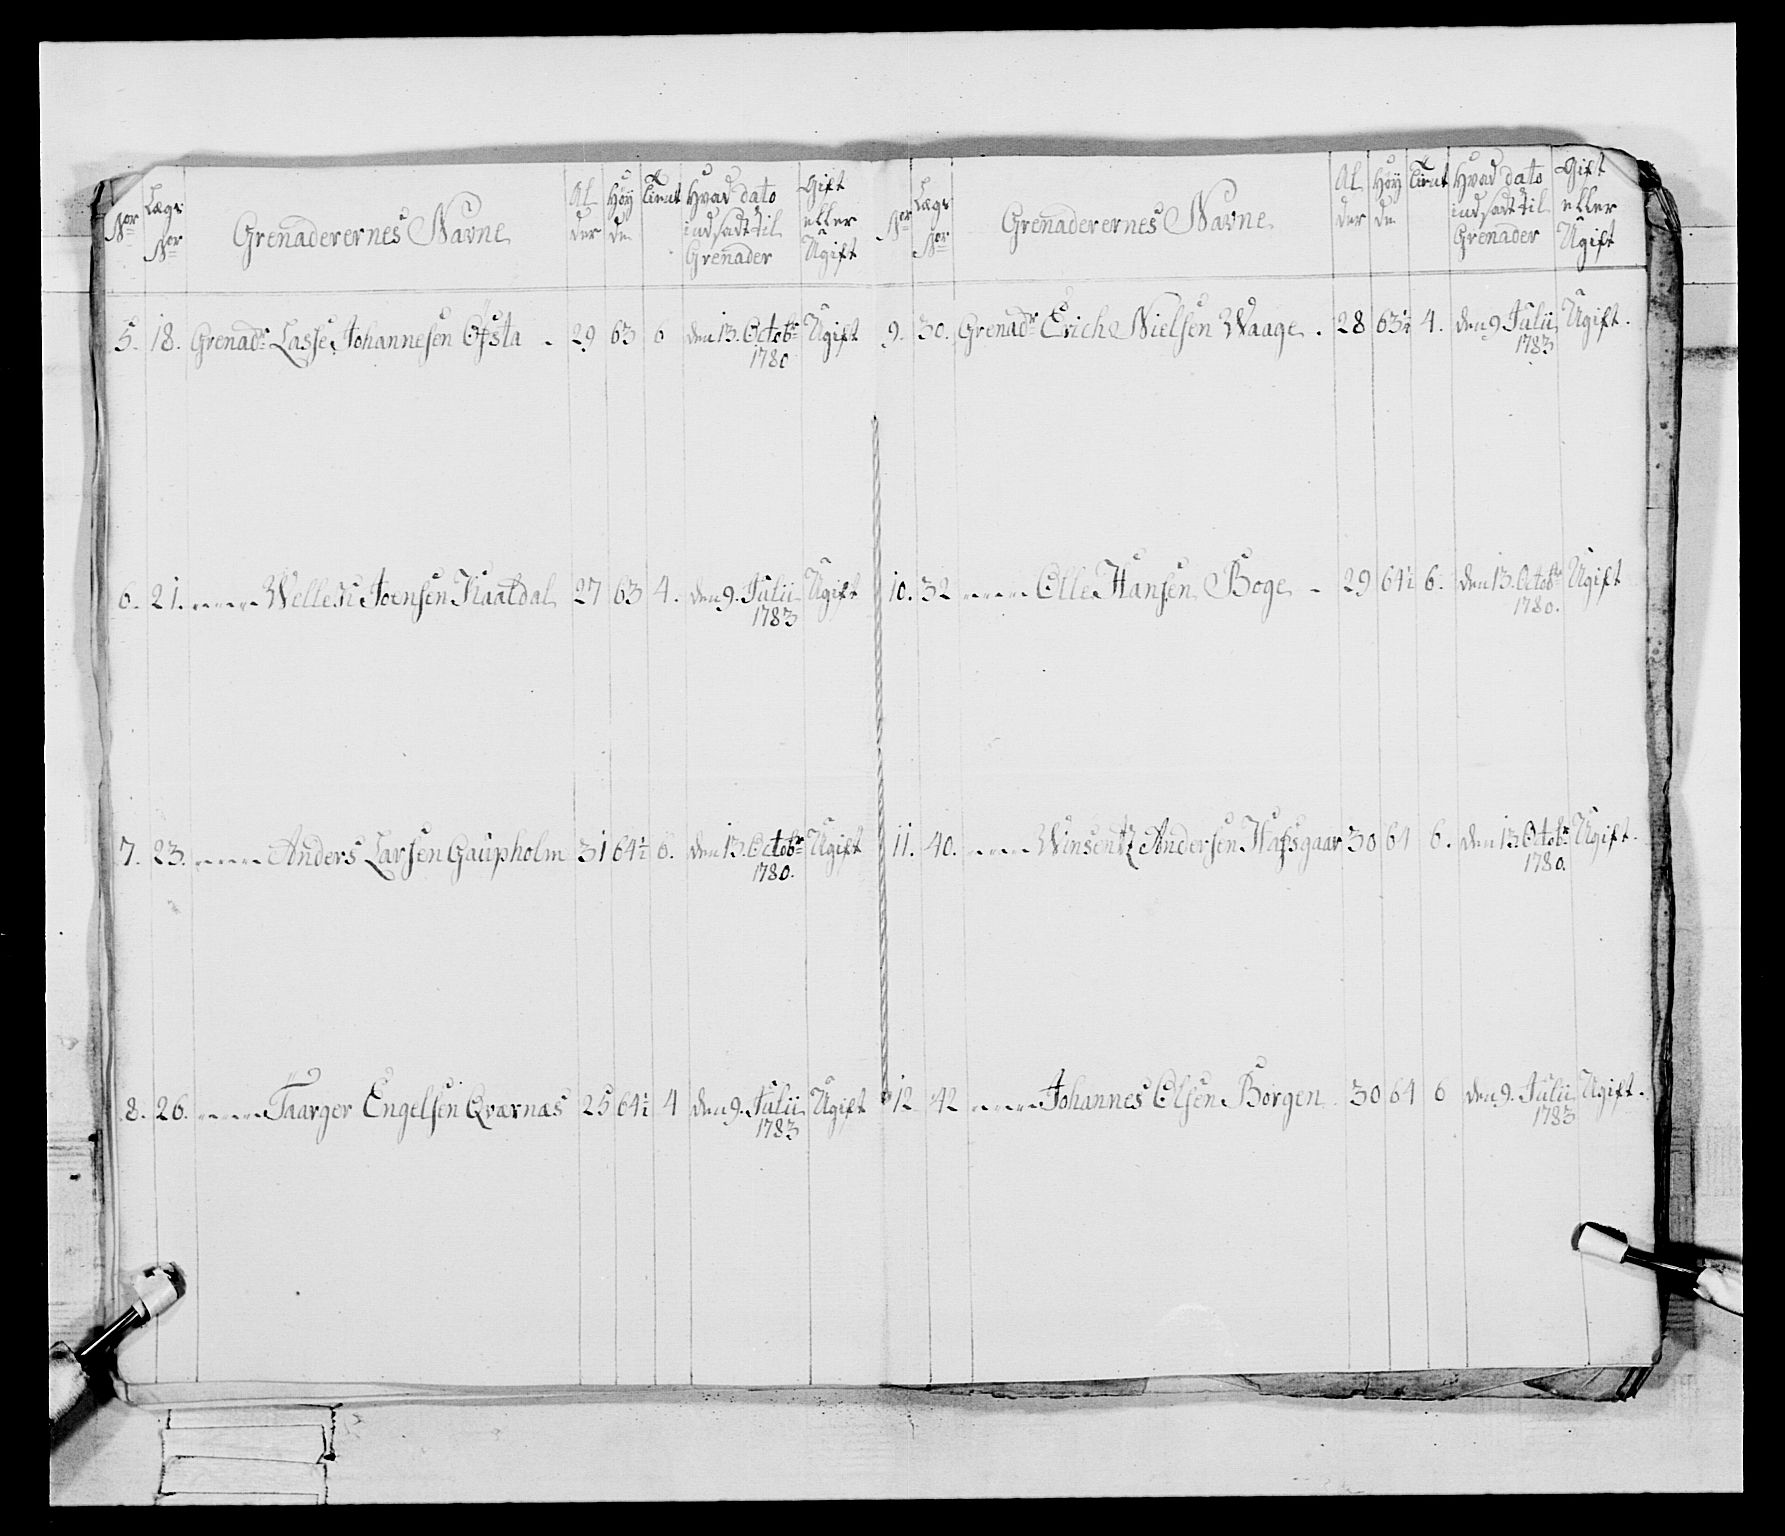 Nor Lægs Nor Grenaderernes Navne Al der Høy de Tient Hvad dato indsadt til Grenader Gift eller Ugift
5. 18. Grenadr Lasse Johannesen Ofsta - 29 63 6 den 13. Octobr 1780 Ugift
6. 21. Welle Joensen Kaaldal 27 63 4. den 9. Julii 1783 Ugift
7. 23. Anders Larsen Gaupholm 31 64½ 6. den 13. Octobr 1780. Ugift
8. 26. Taarger Engelsen Qvarnæs 25 64½ 4 den 9. Julii 1783 Ugift
Nor Lægs Nor Grenaderernes Navne Al der Høy de Tient Hvad dato indsadt til Grenader Gift eller Ugift
9. 30. Grenadr Erich Nielsen Waage. 28 63½ 4. den 9 Julii 1783 Ugift.
10. 32 Olle Hansen Boge - 29 64½ 6. den 13. Octobr 1780. Ugift
11. 40. Winsentz Andersen Hafsgaar 30 64 6. den 13 Octobr 1780. Ugift.
12 42 Johannes Olsen Borgen 30 64 6 den 9. Julii 1783 Ugift.